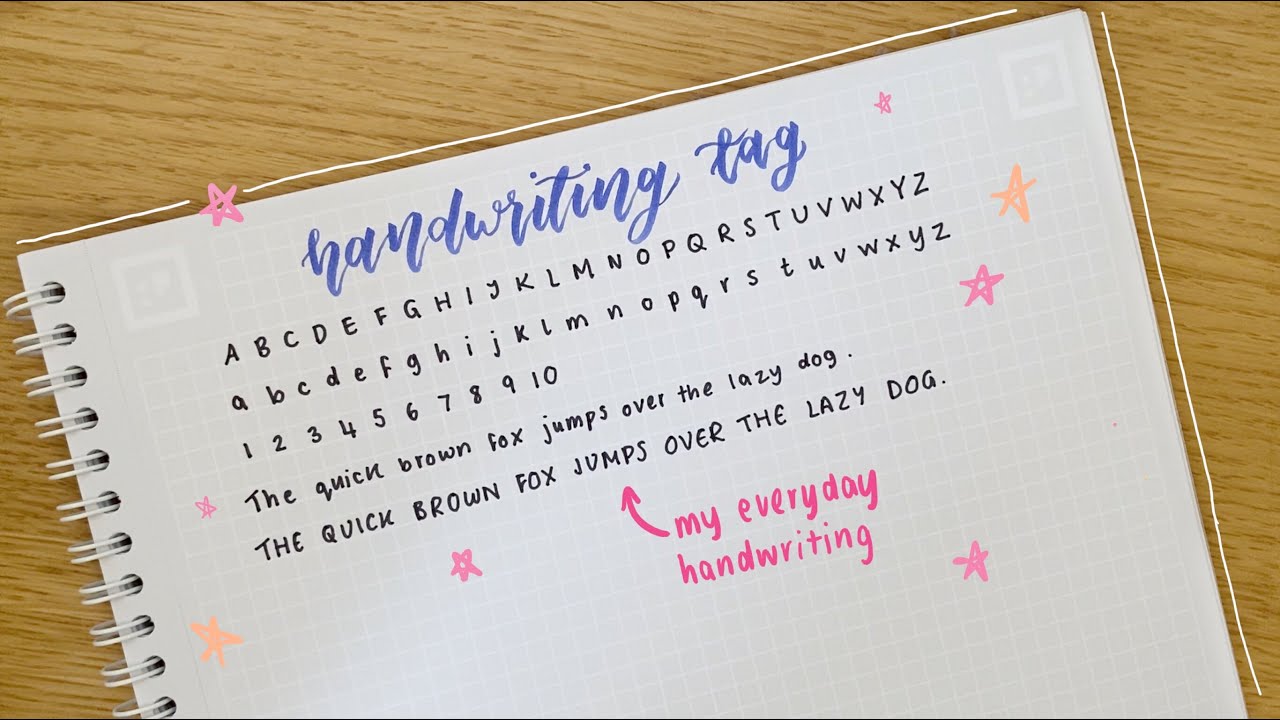 handwriting tag
A B C D E F G H I J K L M N O P Q R S T U V W X Y Z
a b c d e f g h i j k l m n o p q r s t u v w x y z
1 2 3 4 5 6 7 8 9 10
The quick brown fox jumps over the lazy dog.
THE QUICK BROWN FOX JUMPS OVER THE LAZY DOG.
my everyday
handwriting